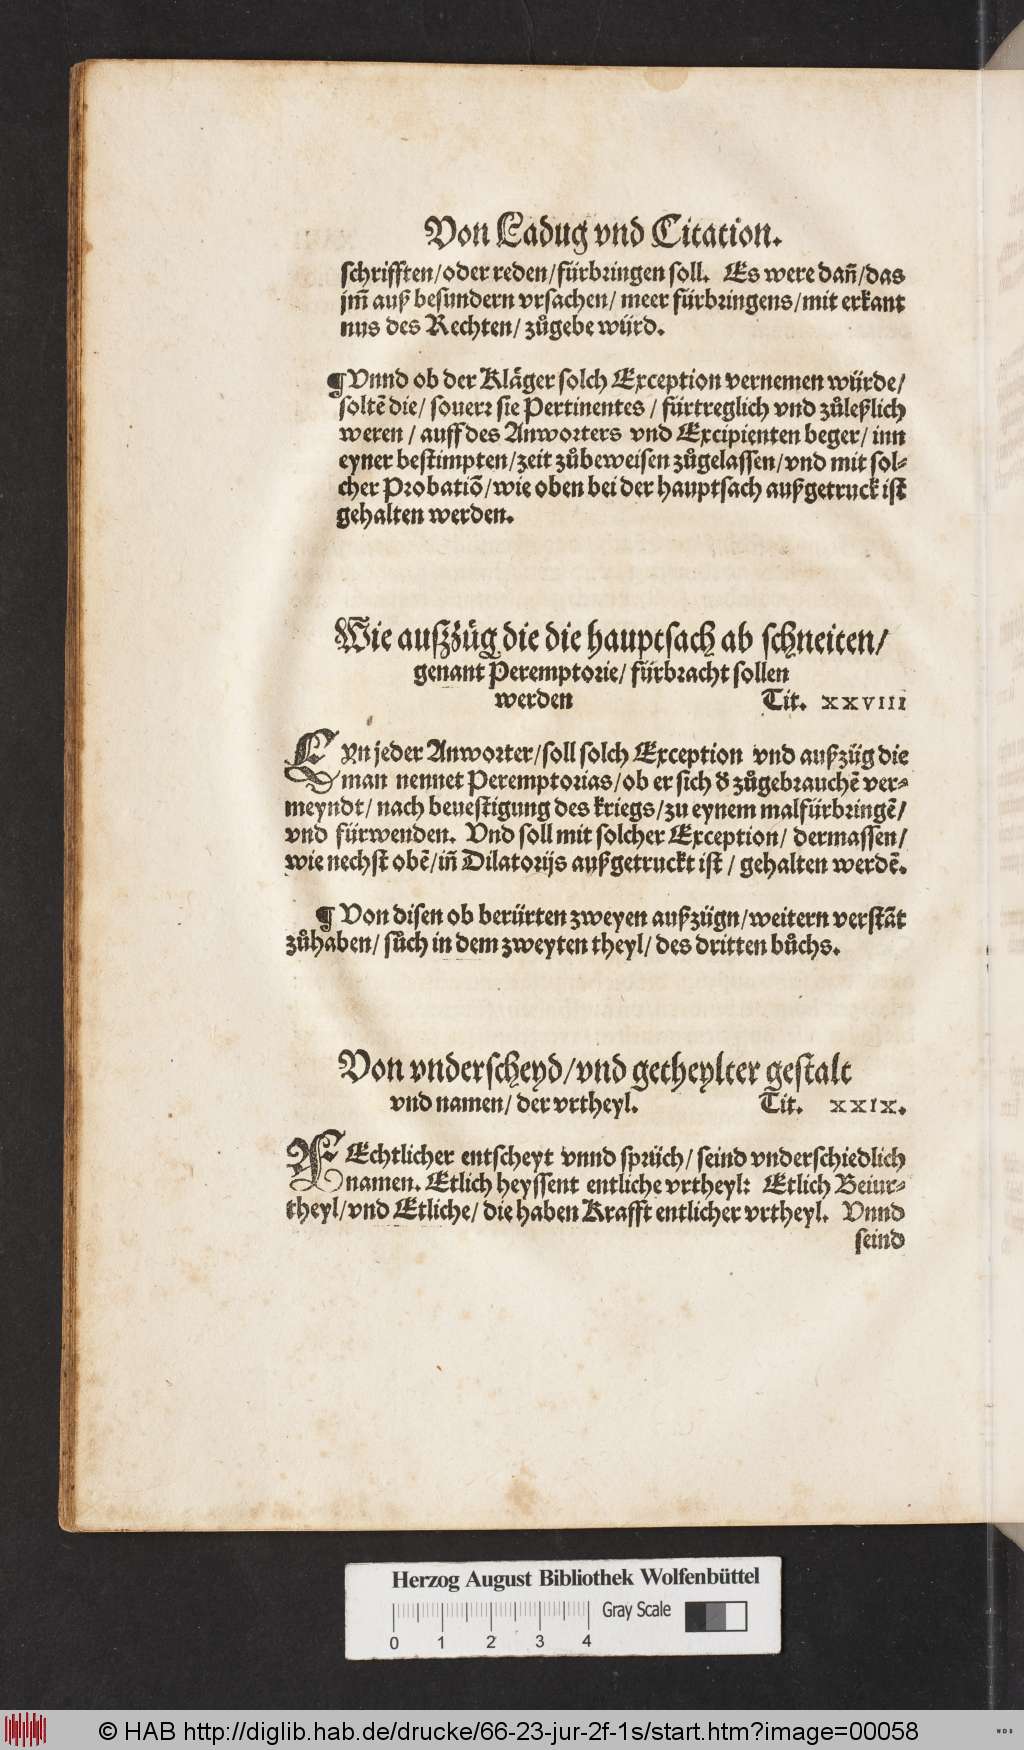 Von Ladug vnd Citation.
schrifften/oder reden/fürbringen soll. Es were dañ/das
jm̃ auß besundern vrsachen/ meer fürbringens/mit erkant
nus des Rechten/ zůgebe würd.
¶Vnnd ob der Kläger solch Exception vernemen würde/
soltẽ die/ souerr sie Pertinentes / fürtreglich vnd zůleßlich
weren / auff des Anworters vnd Excipienten beger/ inn
eyner bestimpten/zeit zůbeweisen zůgelassen/vnd mit sol-
cher Probatiõ/wie oben bei der hauptsach außgetruck ist
gehalten werden.
Wie außzüg die die hauptsach ab schneiten/
genant Peremptorie/ fürbracht sollen
werden Tit. XXVIII
EYn jeder Anworter/soll solch Exception vnd außzüg die
man nennet Peremptorias/ob er sich ð zůgebrauchẽ ver-
meyndt/ nach beuestigung des kriegs/zu eynem malfürbringẽ/
vnd fürwenden. Vnd soll mit solcher Exception/ dermassen/
wie nechst obẽ/iñ Dilatorijs außgetruckt ist / gehalten werdẽ.
¶ Von disen ob berürten zweyen außzügn/weitern verstãt
zůhaben/ sůch in dem zweyten theyl/ des dritten bůchs.
Von vnderscheyd/vnd getheylter gestalt
vnd namen/ der vrtheyl. Tit. XXIX.
REchtlicher entscheyt vnnd sprüch/ seind vnderschiedlich
namen. Etlich heyssent entliche vrtheyl: Etlich Beiur-
theyl/vnd Etliche/ die haben Krafft entlicher vrtheyl. Vnnd
seind
Herzog August Bibliothek Wolfenbüttel
Gray Scale
0 1 2 3 4
© HAB http://diglib.hab.de/drucke/66-23-jur-2f-1s/start.htm?image=00058